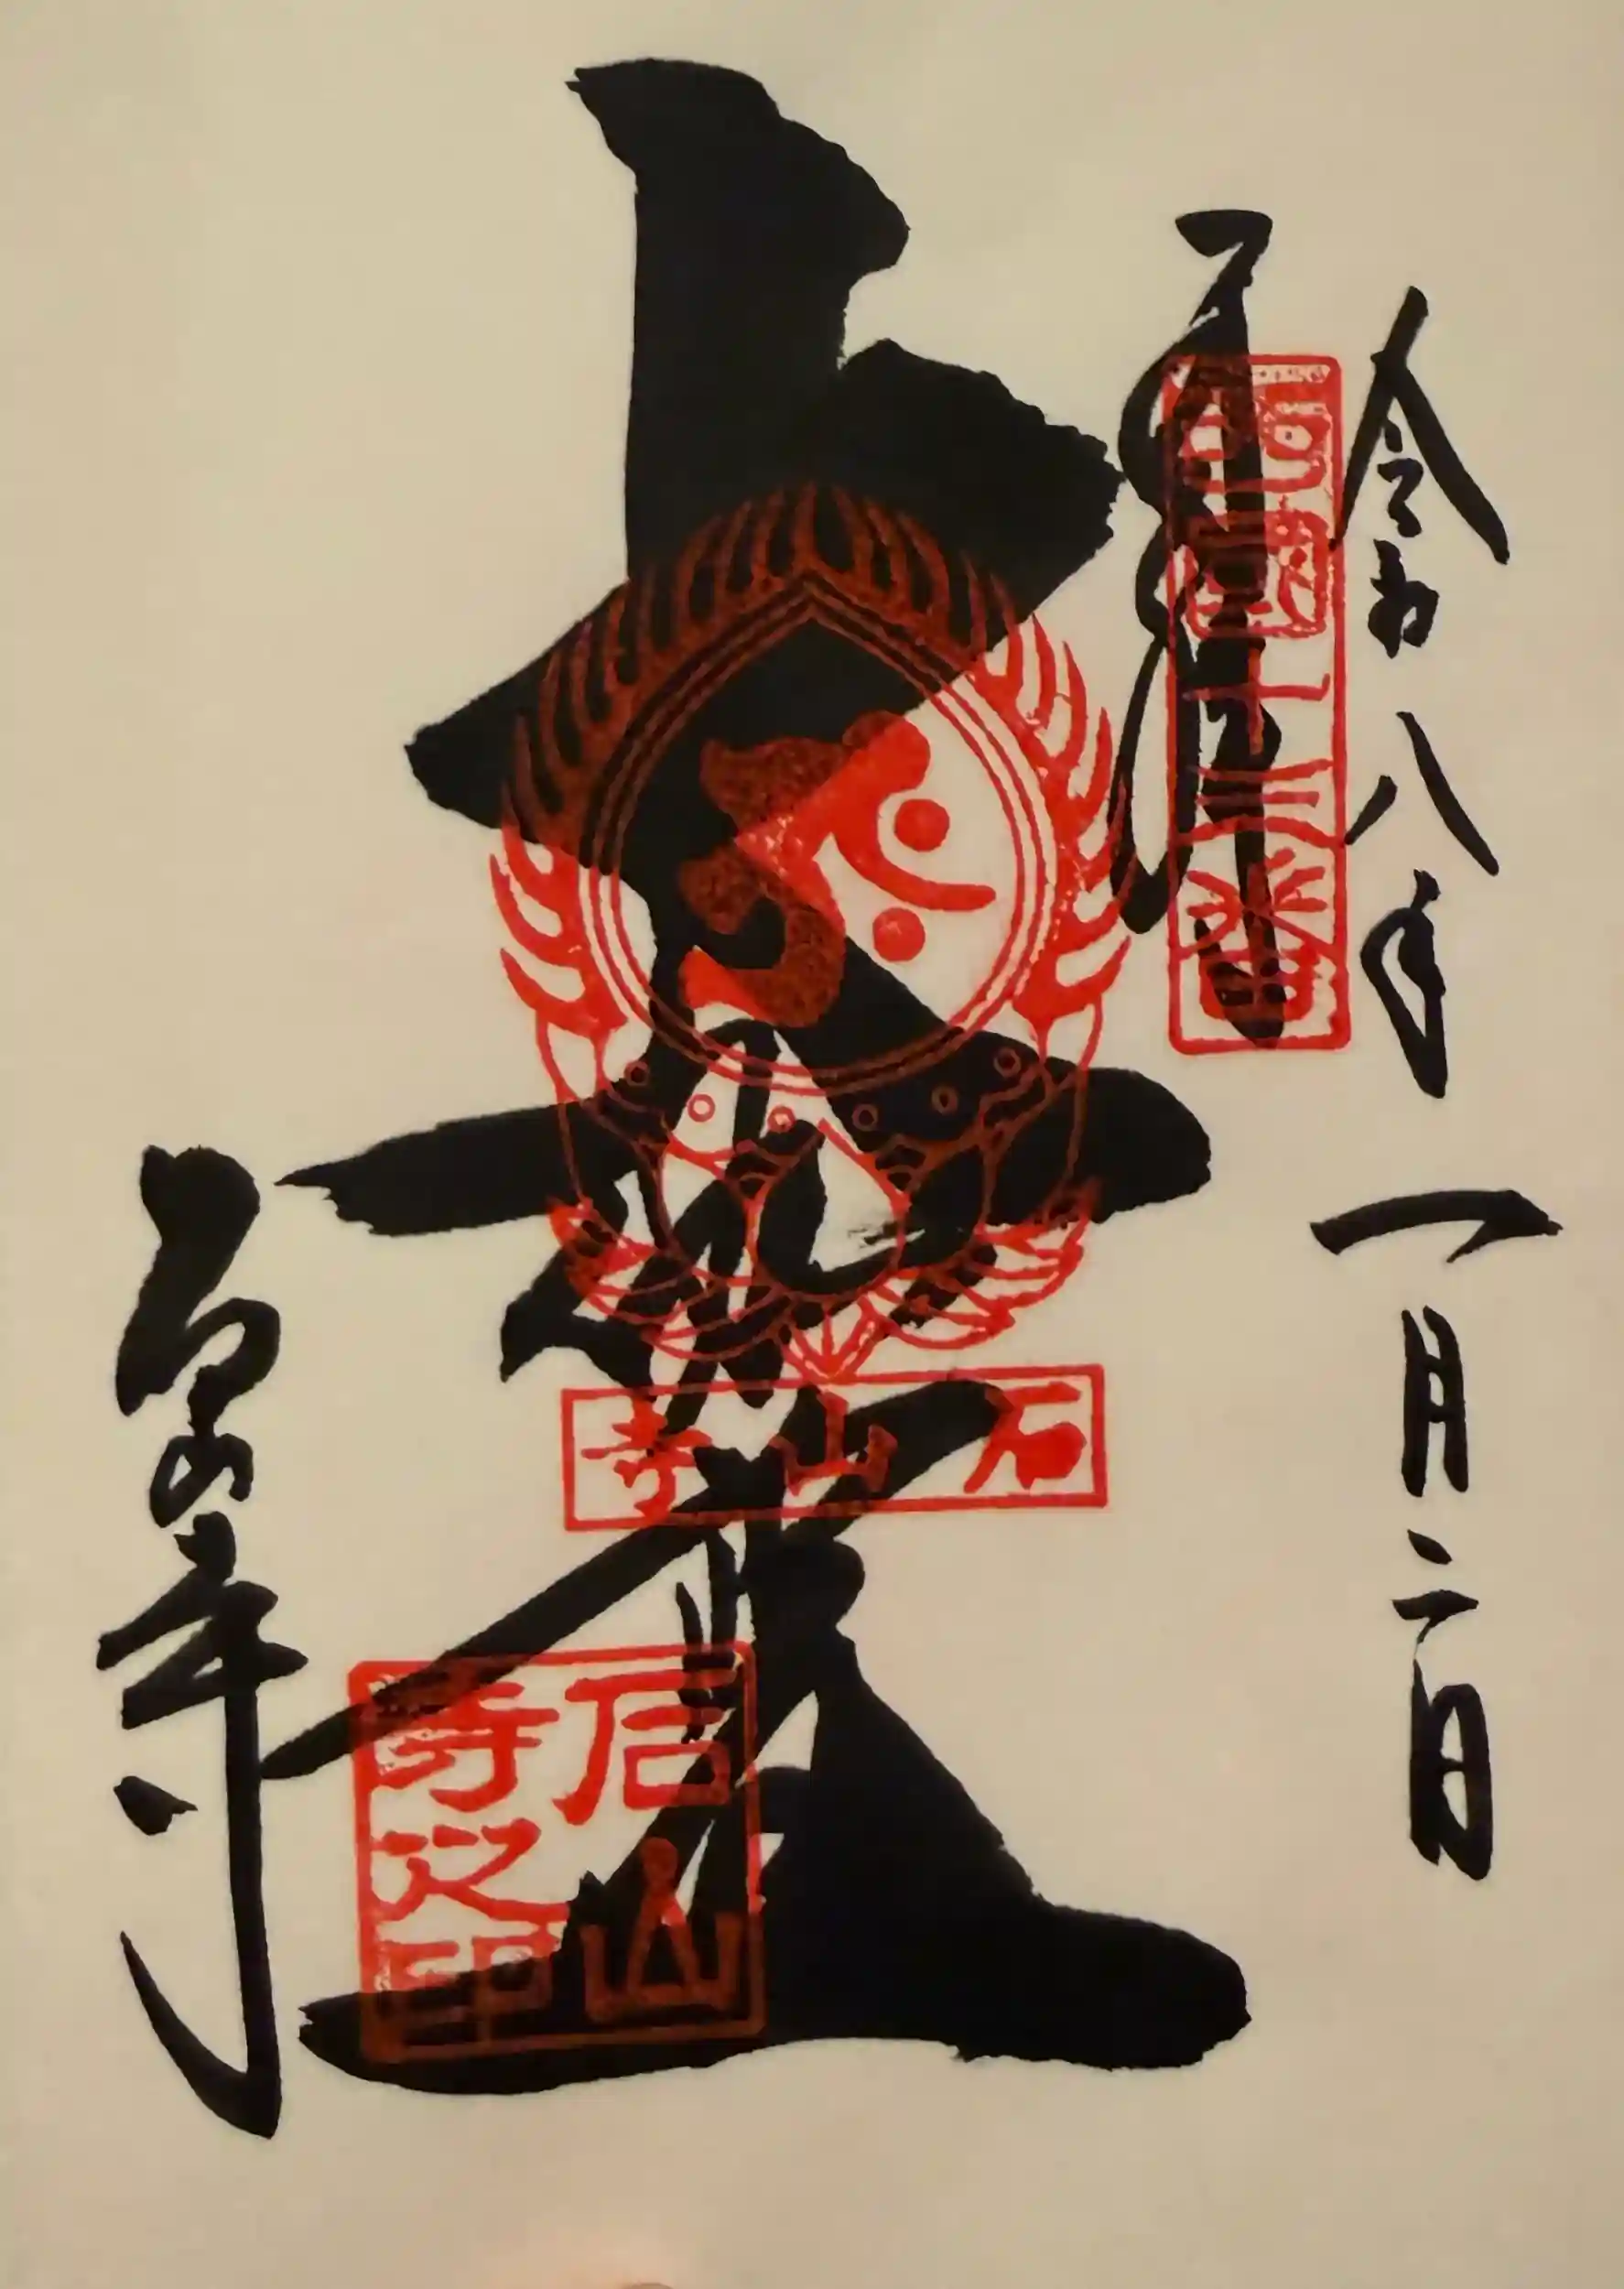 令和八年一月二日
奉拝
西国十三番
大伽藍
石山寺
石山寺之印
石山寺